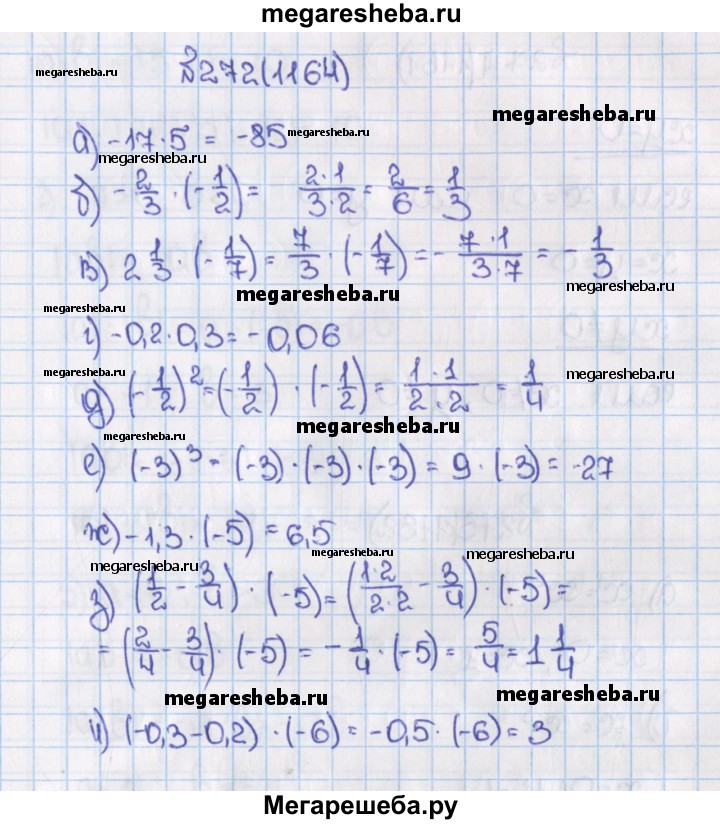 megaresheba.ru
№272(1164)
megaresheba.ru
megaresheba.ru
а) -17·5 = -85 megaresheba.ru
megaresheba.ru
б) -2/3 · (-1/2) = (2·1)/(3·2) = 2/6 = 1/3
в) 2 1/3 · (-1/7) = 7/3 · (-1/7) = - (7·1)/(3·7) = - 1/3
megaresheba.ru
megaresheba.ru
г) -0,2·0,3 = -0,06
megaresheba.ru
megaresheba.ru
д) (-1/2)² = (-1/2) · (-1/2) = (1·1)/(2·2) = 1/4
megaresheba.ru
megaresheba.ru
е) (-3)³ = (-3)·(-3)·(-3) = 9·(-3) = -27
ж) -1,3·(-5) = 6,5
megaresheba.ru
megaresheba.ru
megaresheba.ru
з) (1/2 - 3/4) · (-5) = ((1·2)/(2·2) - 3/4) · (-5) =
= (2/4 - 3/4) · (-5) = -1/4 · (-5) = 5/4 = 1 1/4
megaresheba.ru
megaresheba.ru
и) (-0,3-0,2) · (-6) = -0,5·(-6) = 3
Мегарешеба.ру